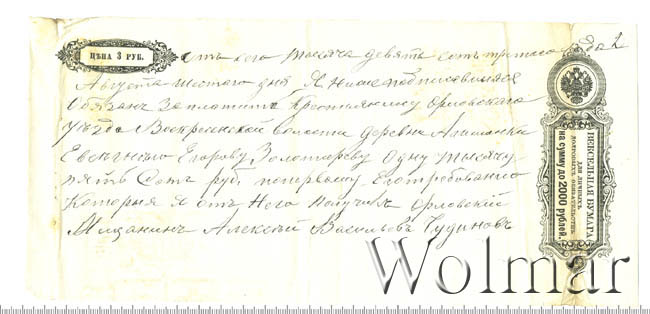 ЦѢНА 3 РУБ.
Отъ сего тысяча девять сотъ третьяго года
Августа шестого дня Я Нижеподписавшійся
Обязанъ заплатить Крестьянину Орловскаго
уѣзда Воскресенской волости деревни
Егорову Золотареву Одну тысячу
пять Сотъ руб. по первому Его требованію
Которыя Я отъ Него получилъ Орловскій
Мѣщанинъ Алексѣй Васильевъ Чудиновъ
ВЕКСЕЛЬНАЯ БУМАГА
ДЛЯ ЛИЧНЫХЪ
ДОЛГОВЫХЪ ОБЯЗАТЕЛЬСТВЪ
на сумму до 2000 рублей.
Wolmar